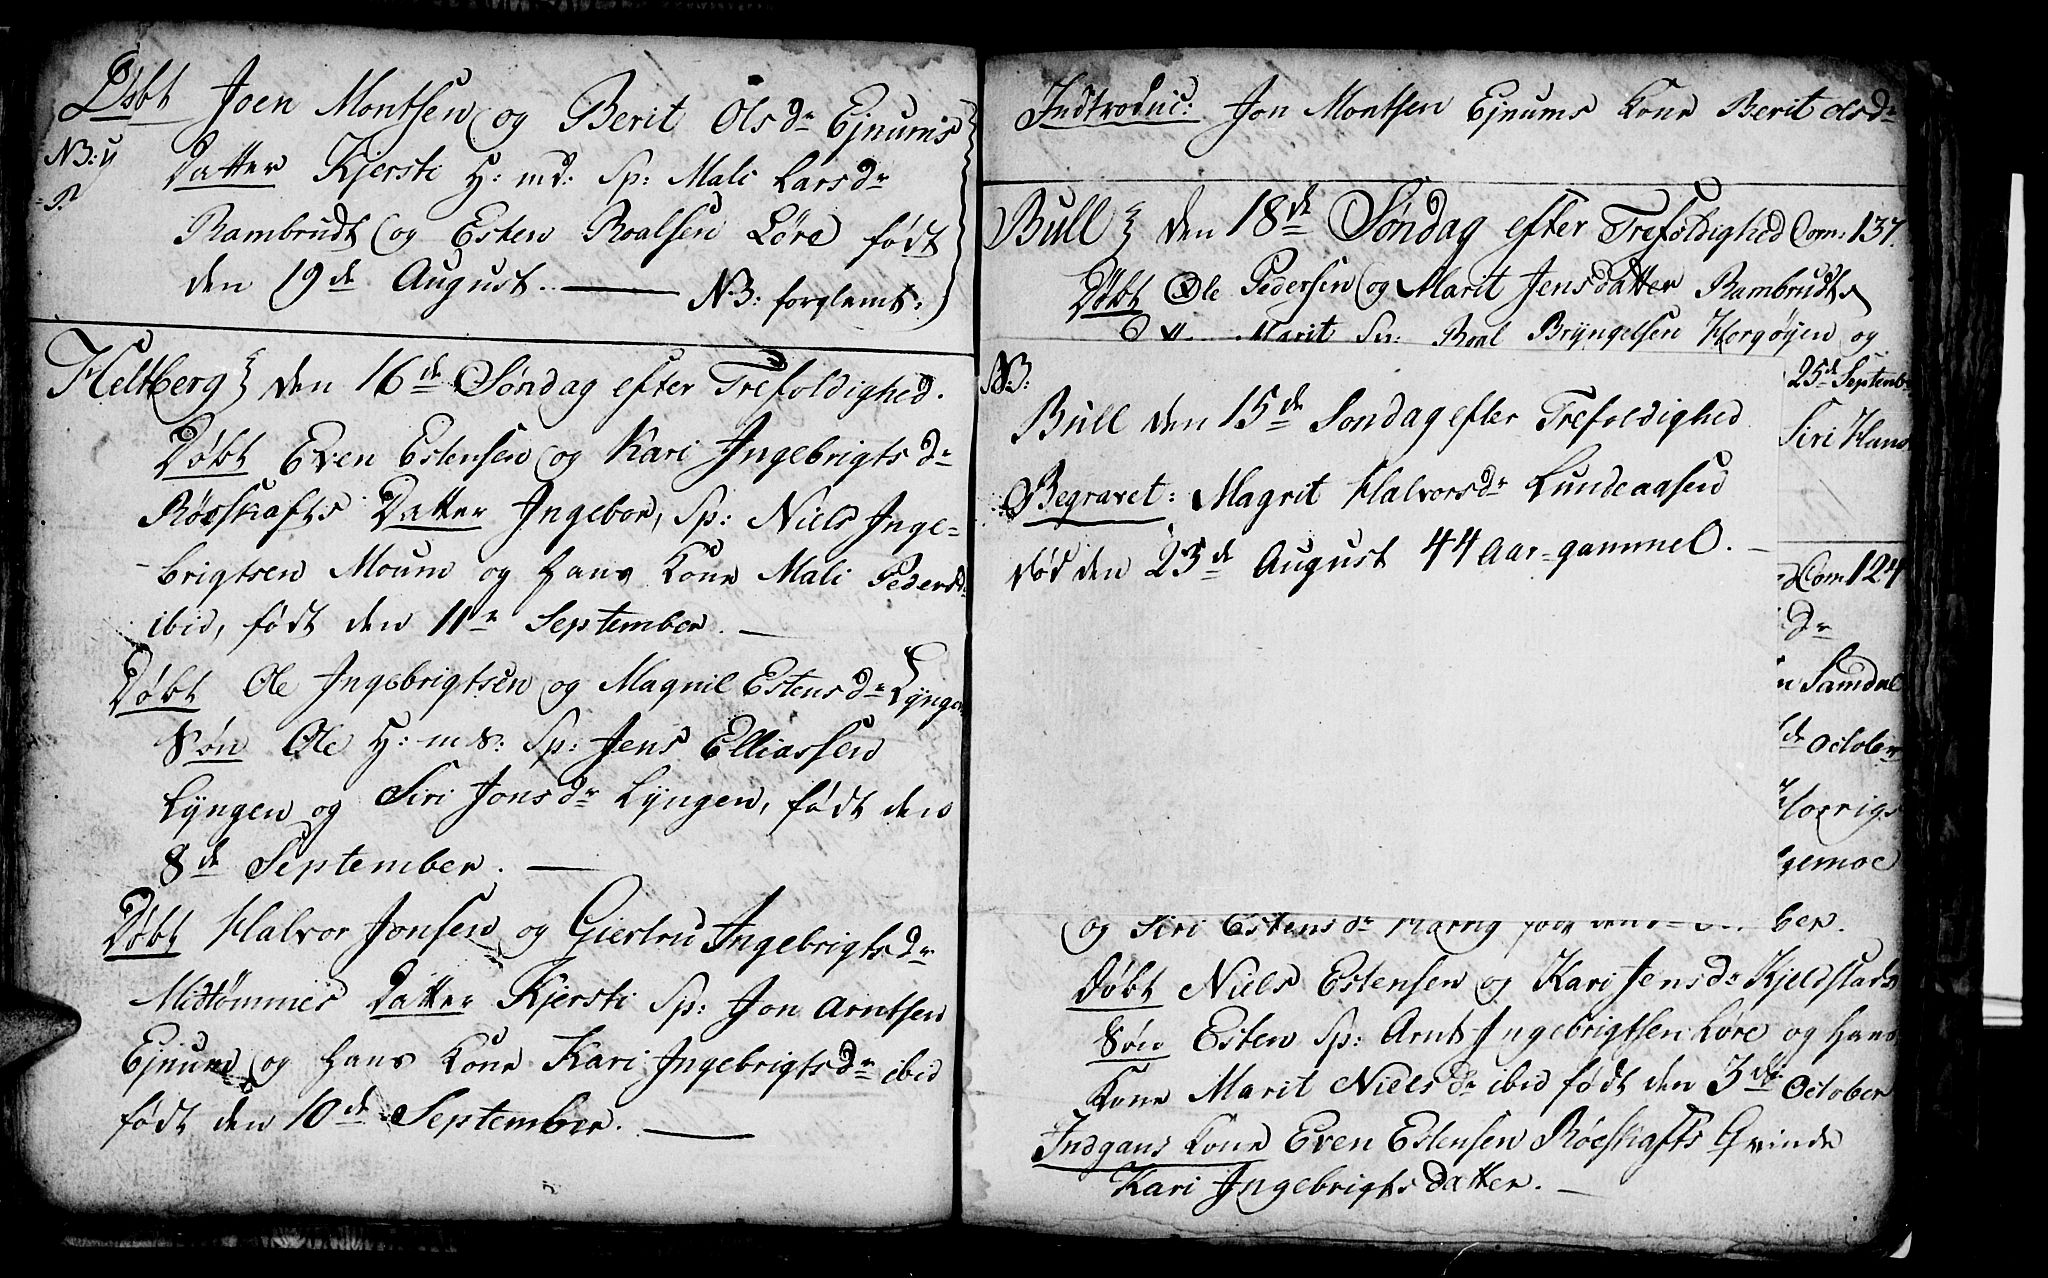 Døbt Joen Montsen og Berit Olsdr Ejnums
NB: Datter Kjersti H: md: Sp: Mali Larsdr
Rambrudt og Esten Roalsen Løre født
den 19de August. — NB: forglemt:
Heltberg den 16de Søndag efter Trefoldighed.
Døbt Even Estensen og Kari Ingebrigtsdr
Røeskafts Datter Ingebor, Sp: Niels Inge=
brigtsen Moum og Hans Kone Mali Pedersd:
ibid, født den 11te September. —
Døbt Ole Ingebrigtsen og Magnil Estensdr Lyngen
Søn Ole H: m S: Sp: Jens Elliassen
Lyngen og Siri Jonsdr Lyngen, født den
8de September. —
Døbt Halvor Jonsen og Giertru Ingebrigtsdr
Midtømmes Datter Kjersti Sp: Jon Arntsen
Ejnum og Hans Kone Kari Ingebrigtsdr ibid
født den 10de September. —
Indtroduc: Jon Montsen Ejnums Kone Berit Olsdr
Bull den 18de Søndag efter Trefoldighed Com: 137.
Døbt Ole Pedersen og Marit Jensdatter Rambrudts
Marit Sp: Roal Bryngelsen Horgøyen og
25de Septemb
Siri Hans
NB:
Bull den 15de Søndag efter Trefoldighed
Begravet: Magrit Halvorsdr Lundeaasen
død den 23de August 44 Aar gammel. —
Com: 124
Dr
n Samdal
de October
Horrigs
gemoe
og Siri Estensdr Harrig ber.
Døbt Niels Estensen og Kari Jensdr Kjeldstads
Søn Esten Sp: Arnt Ingebrigtsen Løre og Hans
Kone Marit Nielsdr ibid født den 3de October
Indgans Kone Even Estensen Røeskafts Qvinde
Kari Ingebrigtsdatter. —